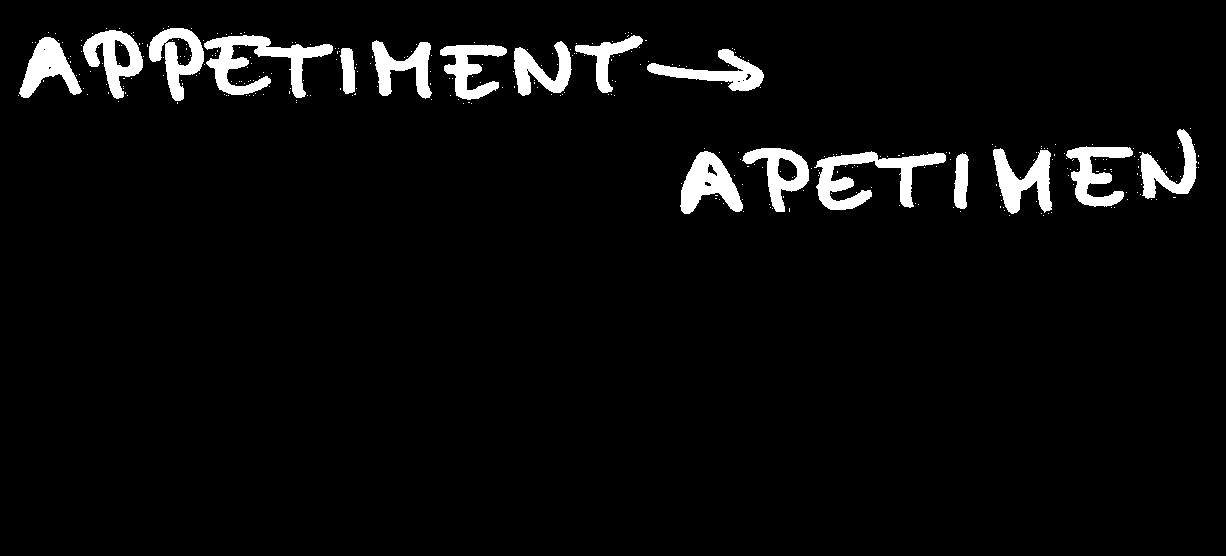 APPETIMENT →
APETIMEN